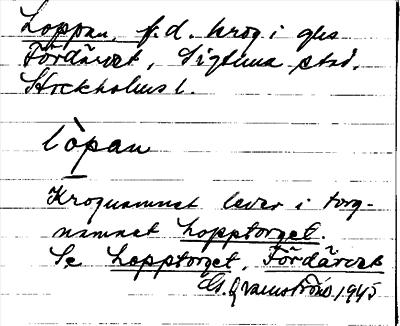 Loppan, f.d. krog i qvs
Fördärvet, Sigtuna stad,
Stockholms l.
lòpan
Krognamnet lever i torg-
namnet Lopptorget.
Se Lopptorget, Fördärvet
1945